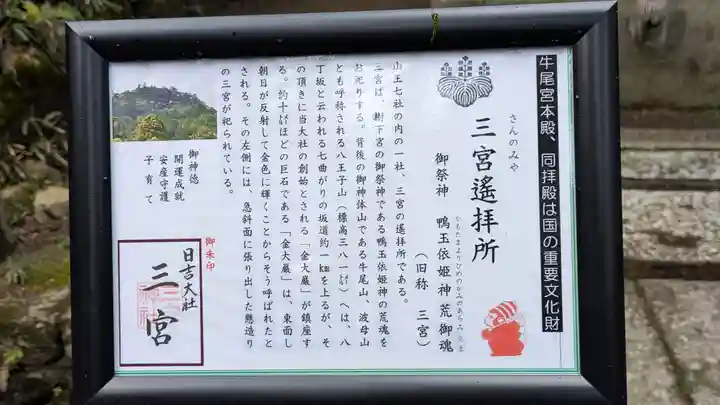 牛尾宮本殿、同拝殿は国の重要文化財
さんのみや
三宮遙拝所
(旧称 三宮)
かもたまよりひめのかみのあらみたま
御祭神 鴨玉依姫神荒御魂
山王七社の内の一社、三宮の遙拝所である。
三宮は、樹下宮の御祭神である鴨玉依姫神の荒魂を
お祀りする。背後の御神体山である牛尾山、波母山
とも呼称される八王子山(標高三八一㍍)へは、八
丁坂と云われる七曲がりの坂道約一㎞を上るが、そ
の頂きに当大社の創始とされる「金大巌」が鎮座す
る。約十㍍ほどの巨石である「金大巌」は、東面し
朝日が反射して金色に輝くことからそう呼ばれたと
される。その左側には、急斜面に張り出した懸造り
の三宮が祀られている。
御神徳
開運成就
安産守護
子育て
御朱印
日吉大社
三宮